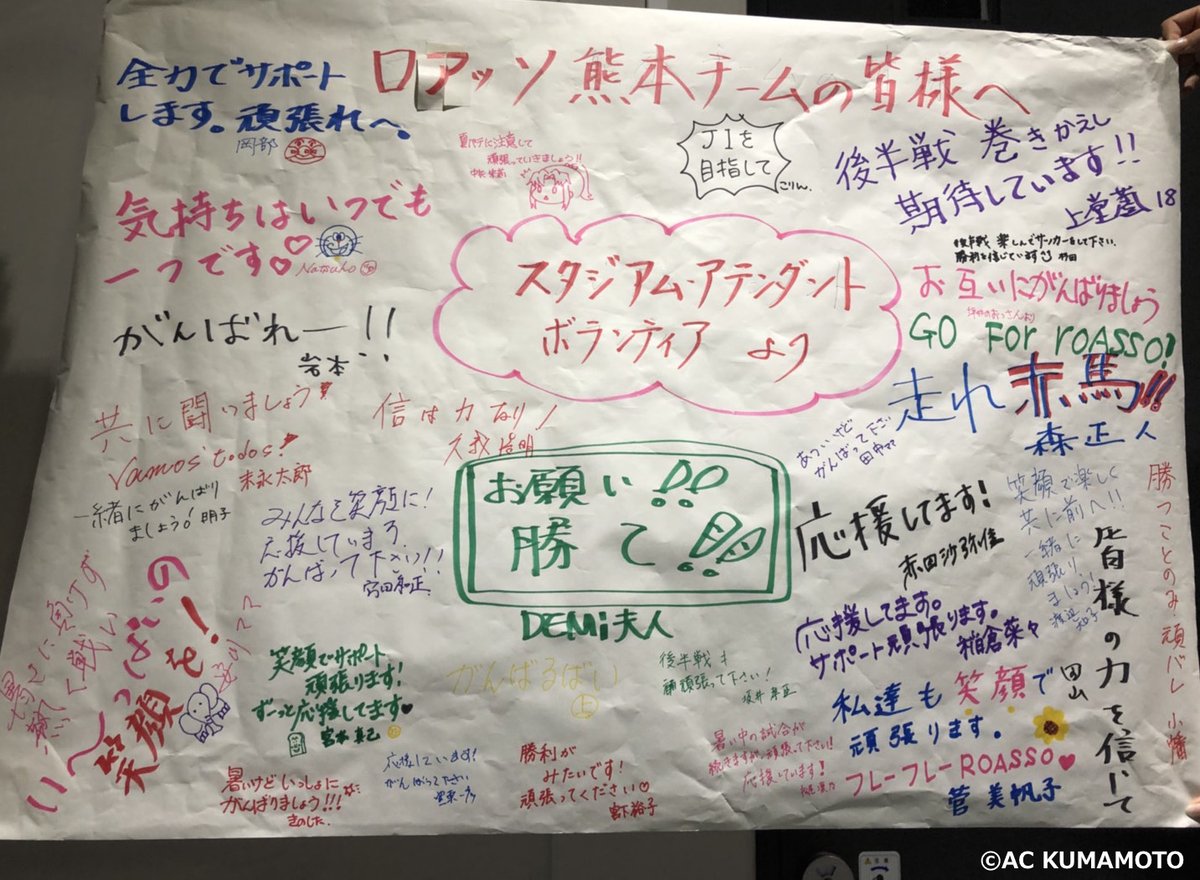 ロアッソ熊本チームの皆様へ
全力でサポート
します。頑張れへ。
岡部
夏バテに注意して
頑張っていきましょう!!
J1を
目指して
ごりん。
後半戦 巻きかえし
期待しています!!
18
気持ちはいつでも
一つです♡
Natsuho
スタジアム・アテンダント
ボランティア より
後半戦、楽しんでサッカーをして下さい。
勝利を信じています
お互いにがんばりましょう
GO FOR ROASSO!
がんばれー!!
岩本
走れ赤馬!!!
森正人
共に闘いましょう
Vamos todos!
末永太郎
信は力なり
あついけど
がんばって下さい
お願い!!
勝て!!
DEMi夫人
応援してます!
赤田沙弥佳
笑顔で楽しく
共に前へ!!
一緒に
頑張り
ましょう!
勝つことのみ頑バレ 小幡
皆様の力を信じて
田山
一緒にがんばり
ましょう! 明子
みんなを笑顔に!
応援しています
がんばって下さいっ!!
暑さに負けず
熱く戦い
い〜っぱいの
笑顔を!
応援してます。
サポート頑張ります。
稲倉菜々
笑顔でサポート
頑張ります!
ずーっと応援してます♥
宮本真己
がんばるばい
上
後半戦も
頑張って下さい!
坂井
私達も笑顔で
頑張ります。
フレーフレーROASSO♥
菅 美帆子
暑いけどいっしょに
がんばりましょう!!!
きのした。
応援しています!
がんばってください
勝利が
みたいです!
頑張ってください♡
宮下裕子
暑い中の試合が
続きますが、頑張って下さい!
応援しています!
©AC KUMAMOTO